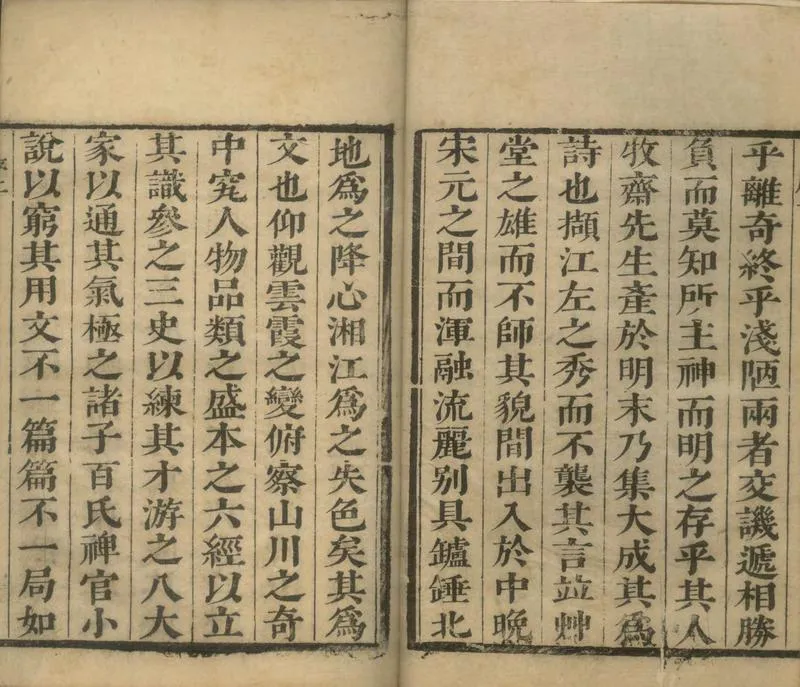 乎離奇終乎淺陋兩者交譏遞相勝
負而莫知所主神而明之存乎其人
牧齋先生產於明末乃集大成其爲
詩也擷江左之秀而不襲其言竝艸
堂之雄而不師其貌間出入於中晚
宋元之間而渾融流麗别具鑪錘北
地爲之降心湘江爲之失色矣其爲
文也仰觀雲霞之變俯察山川之奇
中究人物品類之盛本之六經以立
其識參之三史以練其才游之八大
家以通其氣極之諸子百氏稗官小
說以窮其用文不一篇篇不一局如